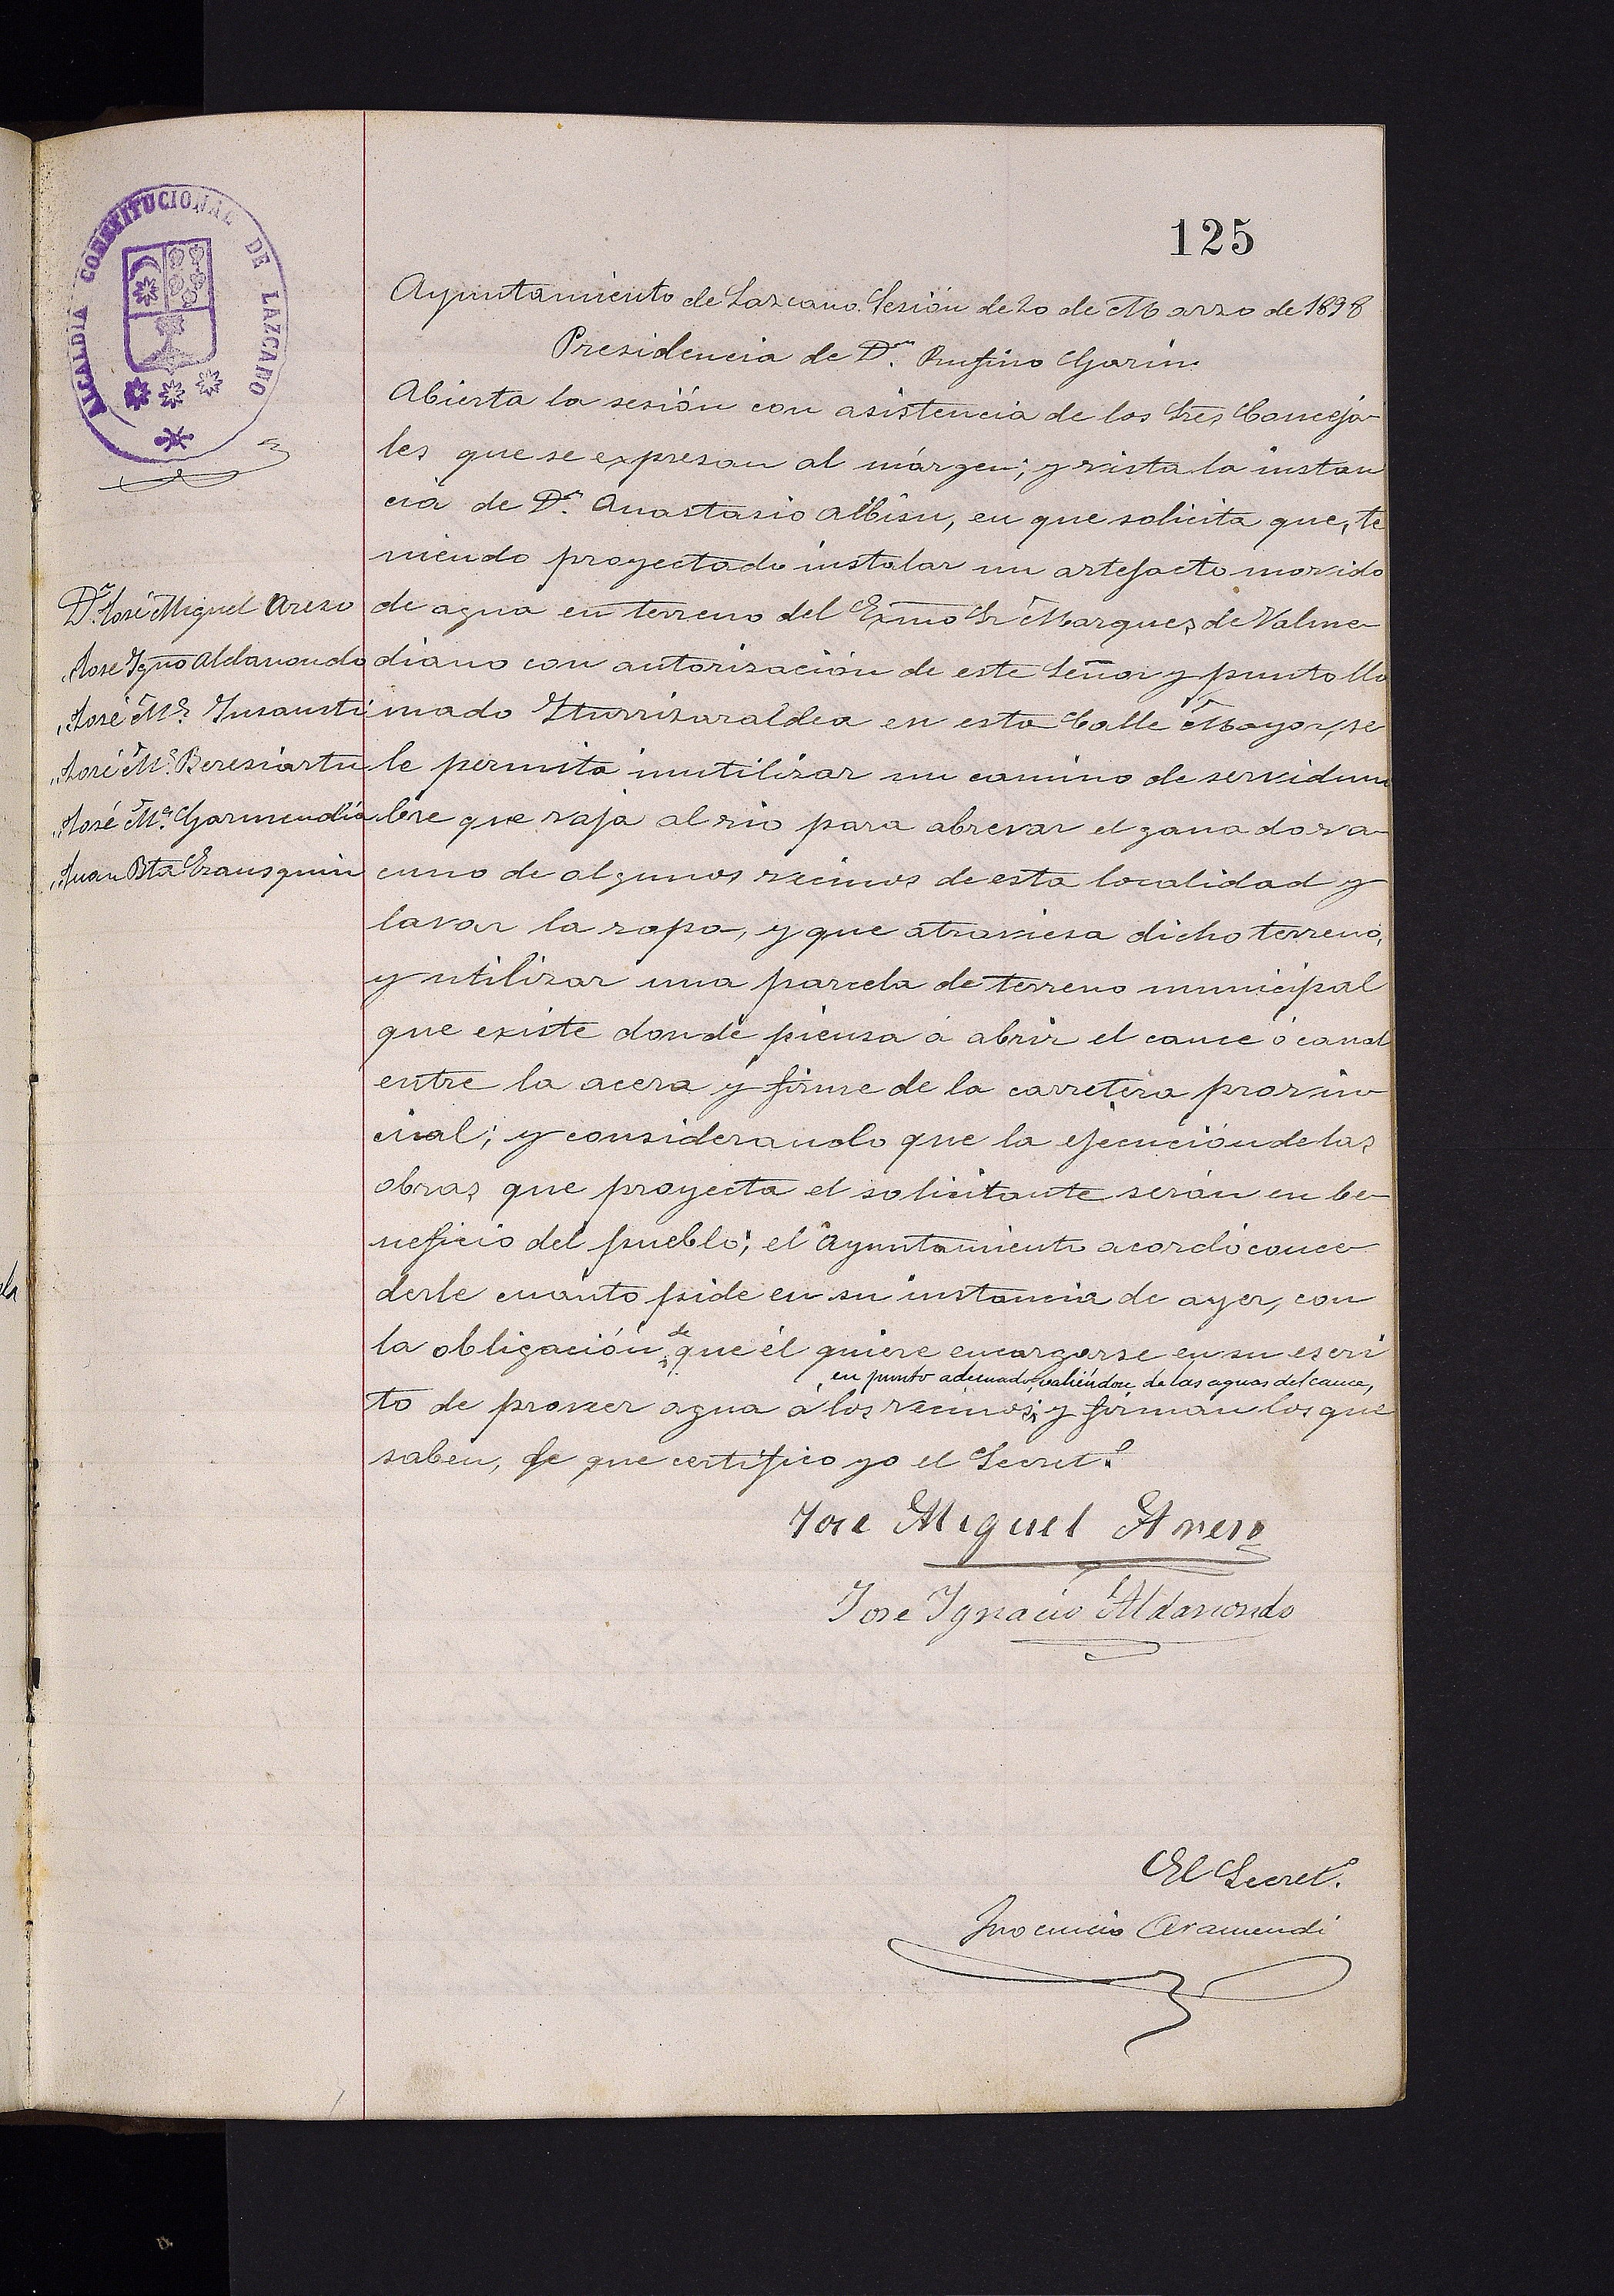 ALCALDIA CONSTITUCIONAL DE LAZCANO
125
Ayuntamiento de Lazcano. Sesión de 20 de Marzo de 1898
Presidencia de Dn. Rufino Garin.
Abierta la sesión con asistencia de los Sres Conceja-
les que se expresan al márgen; y vista la instan
cia de Dn. Anastasio Albisu, en que solicita que, te
niendo proyectado instalar un artefacto movido
de agua en terreno del Exmo Sr Marques de Valme-
diano con autorización de este Señor y punto lla
mado Iturrizaraldea en esta Calle Mayor, se
le permita inutilizar un camino de servidum
bre que vaja al rio para abrevar el ganado va-
cuno de algunos vecinos de esta localidad y
lavar la ropa, y que atraviesa dicho terreno,
y utilizar una parcela de terreno municipal
que existe donde piensa á abrir el cauce ó canal
entre la acera y firme de la carretera provin-
cial; y considerando que la ejecución de las
obras que proyecta el solicitante serán en be-
neficio del pueblo; el Ayuntamiento acordó conce-
derle cuánto pide en su instancia de ayer, con
la obligación de que él quiere encargarse en su escri
en punto adecuado, valiéndose de las aguas del cauce,
to de proveer agua á los vecinos; y firman los que
saben, de que certifico yo el Secreto.
Dn. José Miguel Areso
" Jose Igno Aldanondo
" José Ma. Insausti
" José Ma. Beresiartu
" José Ma. Garmendia
" Juan Bta Erausquin
Jose Miguel Areso
Jose Ignacio Aldanondo
El Secreto.
Inocencio Aramendi